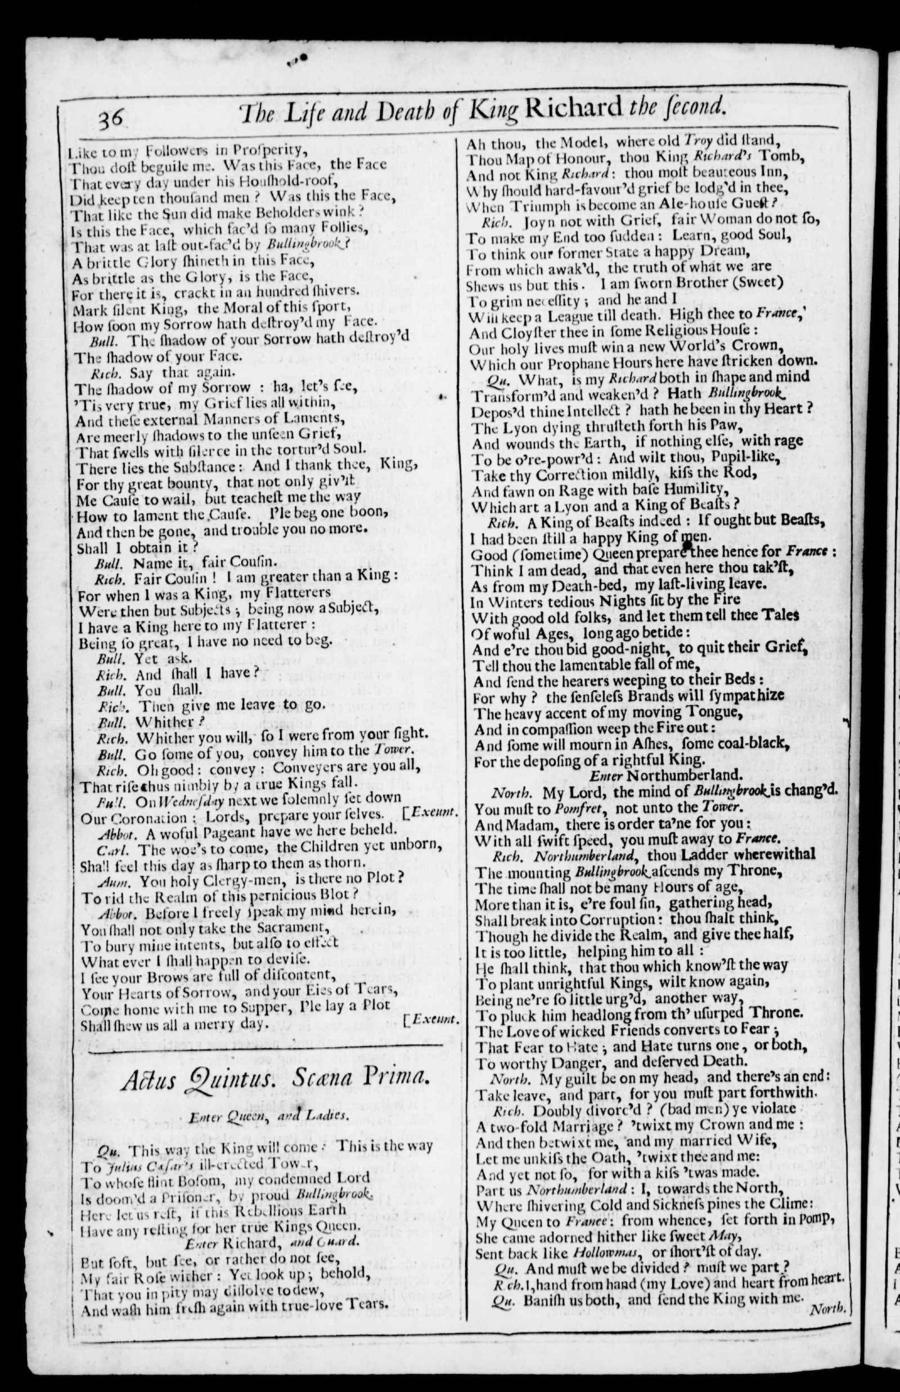 36
The Life and Death of King Richard the ſecond.
Like to my Followers in Proſperity,
Thou doſt beguile me. Was this Face, the Face
That every day under his Houſhold-roof,
Did keep ten thouſand men? Was this the Face,
That like the Sun did make Beholders wink?
Is this the Face, which fac'd ſo many Follies,
That was at laſt out-fac'd by Bullingbrook?
A brittle Glory ſhineth in this Face,
As brittle as the Glory, is the Face,
For there it is, crackt in an hundred ſhivers.
Mark ſilent King, the Moral of this ſport,
How ſoon my Sorrow hath deſtroy'd my Face.
Bull. The ſhadow of your Sorrow hath deſtroy'd
The ſhadow of your Face.
Rich. Say that again.
The ſhadow of my Sorrow : ha, let's ſee,
'Tis very true, my Grief lies all within,
And theſe external Manners of Laments,
Are meerly ſhadows to the unſeen Grief,
That ſwells with ſilence in the tortur'd Soul.
There lies the Subſtance: And I thank thee, King,
For thy great bounty, that not only giv'ſt
Me Cauſe to wail, but teacheſt me the way
How to lament the Cauſe. I'le beg one boon,
And then be gone, and trouble you no more.
Shall I obtain it?
Bull. Name it, fair Couſin.
Rich. Fair Couſin! I am greater than a King:
For when I was a King, my Flatterers
Were then but Subjects; being now a Subject,
I have a King here to my Flatterer:
Being ſo great, I have no need to beg.
Bull. Yet ask.
Rich. And ſhall I have?
Bull. You ſhall.
Rich. Then give me leave to go.
Bull. Whither?
Rich. Whither you will, ſo I were from your ſight.
Bull. Go ſome of you, convey him to the Tower.
Rich. Oh good: convey: Conveyers are you all,
That riſe thus nimbly by a true Kings fall.
Bull. On Wedneſday next we ſolemnly ſet down
Our Coronation: Lords, prepare your ſelves. [Exeunt.
Abbot. A woful Pageant have we here beheld.
Carl. The woe's to come, the Children yet unborn,
Shall feel this day as ſharp to them as thorn.
Aum. You holy Clergy-men, is there no Plot?
To rid the Realm of this pernicious Blot?
Abbot. Before I freely ſpeak my mind herein,
You ſhall not only take the Sacrament,
To bury mine intents, but alſo to effect
What ever I ſhall happen to deviſe.
I ſee your Brows are full of diſcontent,
Your Hearts of Sorrow, and your Eies of Tears,
Come home with me to Supper, I'le lay a Plot
Shall ſhew us all a merry day. [Exeunt.
Actus Quintus. Scæna Prima.
Enter Queen, and Ladies.
Qu. This way the King will come: This is the way
To Julius Cæſar's ill-erected Tower,
To whoſe flint Boſom, my condemned Lord
Is doom'd a Priſoner, by proud Bullingbrook.
Here let us reſt, if this Rebellious Earth
Have any reſting for her true Kings Queen.
Enter Richard, and Guard.
But ſoft, but ſee, or rather do not ſee,
My fair Roſe wither: Yet look up; behold,
That you in pity may diſſolve to dew,
And waſh him freſh again with true-love Tears.
Ah thou, the Model, where old Troy did ſtand,
Thou Map of Honour, thou King Richard's Tomb,
And not King Richard: thou moſt beauteous Inn,
Why ſhould hard-favour'd grief be lodg'd in thee,
When Triumph is become an Ale-houſe Gueſt?
Rich. Joyn not with Grief, fair Woman do not ſo,
To make my End too ſudden: Learn, good Soul,
To think our former State a happy Dream,
From which awak'd, the truth of what we are
Shews us but this. I am ſworn Brother (Sweet)
To grim neceſſity; and he and I
Will keep a League till death. High thee to France,
And Cloyſter thee in ſome Religious Houſe:
Our holy lives muſt win a new World's Crown,
Which our Prophane Hours here have ſtricken down.
Qu. What, is my Richard both in ſhape and mind
Transform'd and weaken'd? Hath Bullingbrook
Depos'd thine Intellect? hath he been in thy Heart?
The Lyon dying thruſteth forth his Paw,
And wounds the Earth, if nothing elſe, with rage
To be o're-powr'd: And wilt thou, Pupil-like,
Take thy Correction mildly, kiſs the Rod,
And fawn on Rage with baſe Humility,
Which art a Lyon and a King of Beaſts?
Rich. A King of Beaſts indeed: If ought but Beaſts,
I had been ſtill a happy King of men.
Good (ſometime) Queen prepare thee hence for France:
Think I am dead, and that even here thou tak'ſt,
As from my Death-bed, my laſt-living leave.
In Winters tedious Nights ſit by the Fire
With good old folks, and let them tell thee Tales
Of woful Ages, long ago betide:
And e're thou bid good-night, to quit their Grief,
Tell thou the lamentable fall of me,
And ſend the hearers weeping to their Beds:
For why? the ſenſeleſs Brands will ſympathize
The heavy accent of my moving Tongue,
And in compaſſion weep the Fire out:
And ſome will mourn in Aſhes, ſome coal-black,
For the depoſing of a rightful King.
Enter Northumberland.
North. My Lord, the mind of Bullingbrook is chang'd.
You muſt to Pomfret, not unto the Tower.
And Madam, there is order ta'ne for you:
With all ſwift ſpeed, you muſt away to France.
Rich. Northumberland, thou Ladder wherewithal
The mounting Bullingbrook aſcends my Throne,
The time ſhall not be many Hours of age,
More than it is, e're foul ſin, gathering head,
Shall break into Corruption: thou ſhalt think,
Though he divide the Realm, and give thee half,
It is too little, helping him to all:
He ſhall think, that thou which know'ſt the way
To plant unrightful Kings, wilt know again,
Being ne're ſo little urg'd, another way,
To pluck him headlong from th' uſurped Throne.
The Love of wicked Friends converts to Fear;
That Fear to Hate; and Hate turns one, or both,
To worthy Danger, and deſerved Death.
North. My guilt be on my head, and there's an end:
Take leave, and part, for you muſt part forthwith.
Rich. Doubly divorc'd? (bad men) ye violate
A two-fold Marriage? 'twixt my Crown and me:
And then betwixt me, and my married Wife,
Let me unkiſs the Oath, 'twixt thee and me:
And yet not ſo, for with a kiſs 'twas made.
Part us Northumberland: I, towards the North,
Where ſhivering Cold and Sickneſs pines the Clime:
My Queen to France: from whence, ſet forth in Pomp,
She came adorned hither like ſweet May,
Sent back like Hollowmas, or ſhort'ſt of day.
Qu. And muſt we be divided? muſt we part?
Rich. I, hand from hand (my Love) and heart from heart.
Qu. Baniſh us both, and ſend the King with me.
North.